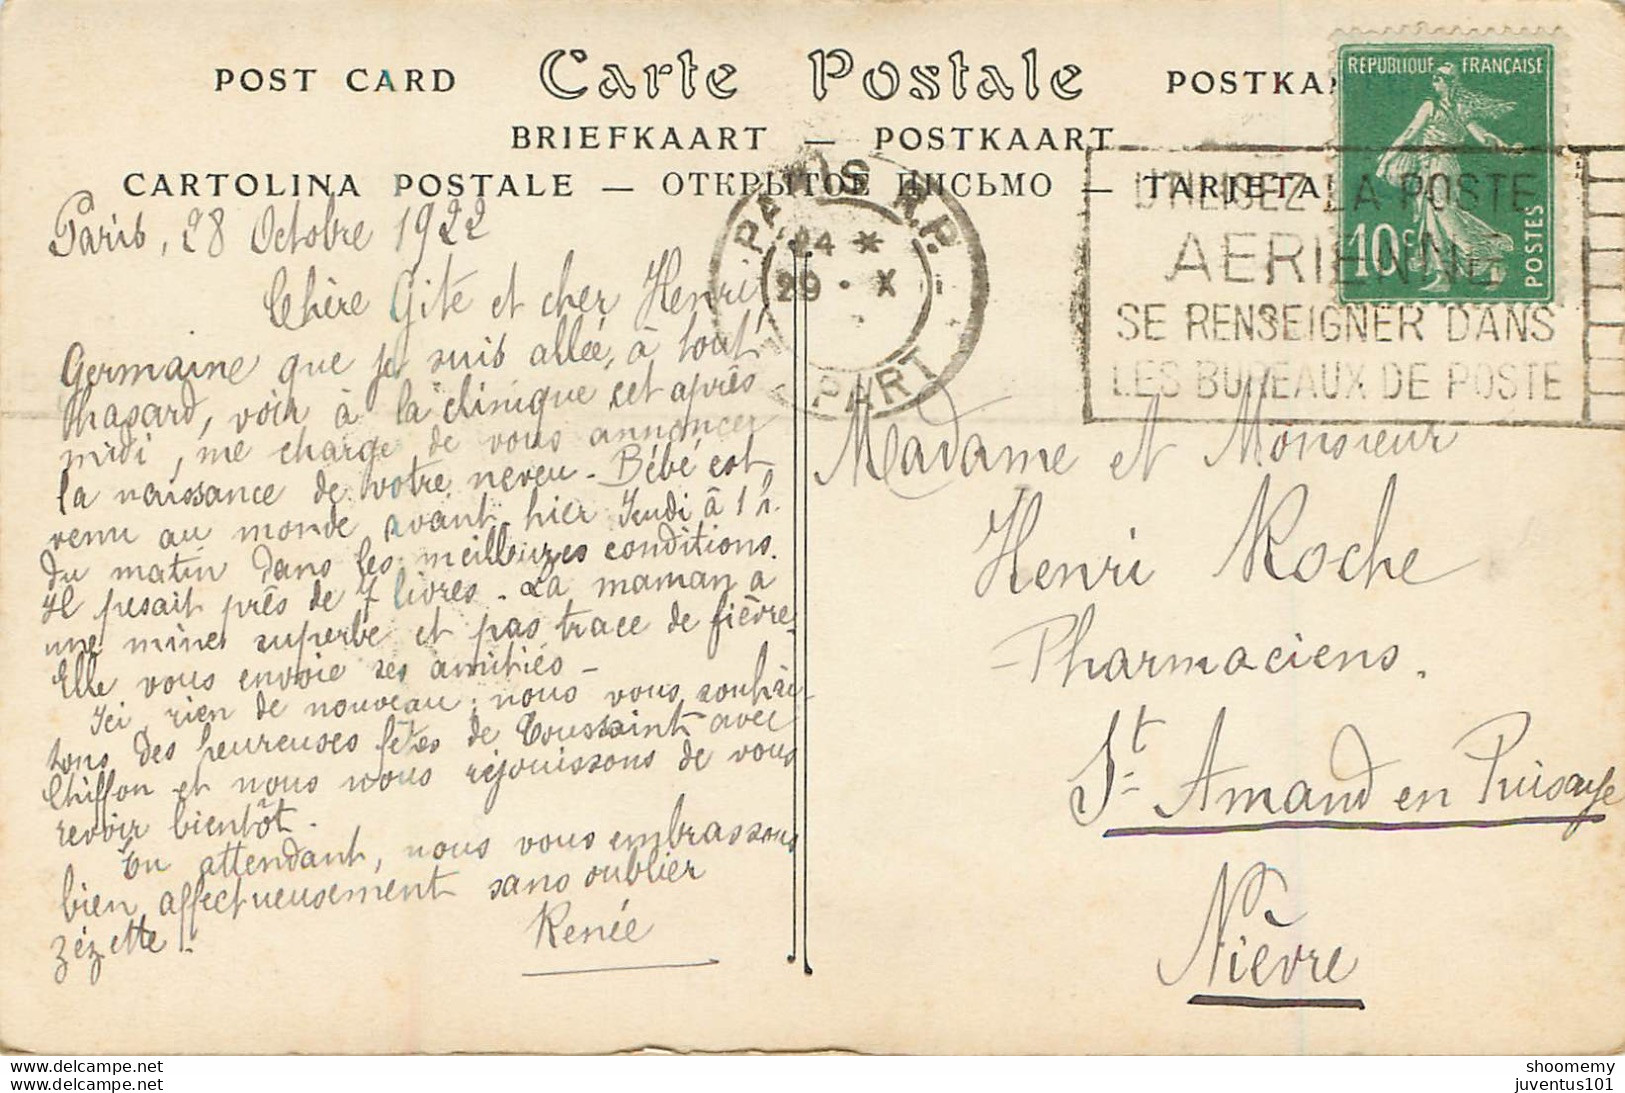 POST CARD Carte Postale POSTKA
BRIEFKAART — POSTKAART
CARTOLINA POSTALE — ОТКРЫТОЕ ПИСЬМО — TARJETA
RÉPUBLIQUE FRANÇAISE
10c
POSTES
PARIS R.P.
24 *
29 · X
DÉPART
UTILISEZ LA POSTE
AERIENNE
SE RENSEIGNER DANS
LES BUREAUX DE POSTE
Paris, 28 Octobre 1922
Chère Gite et cher Henri
Germaine que je suis allée, à tout
hasard, voir à la clinique cet après
midi, me charge de vous annoncer
la naissance de votre neveu - Bébé est
venu au monde avant hier Jeudi à 1 h.
du matin dans les meilleures conditions.
Il pesait près de 7 livres - La maman a
une mine superbe et pas trace de fièvre.
Elle vous envoie ses amitiés -
Ici, rien de nouveau ; nous vous souhai-
tons des heureuses fêtes de Toussaint avec
Chiffon et nous nous réjouissons de vous
revoir bientôt.
En attendant, nous vous embrassons
bien affectueusement sans oublier
Zézette.
Renée
Madame et Monsieur
Henri Roche
- Pharmaciens.
St Amand en Puisaye
Nièvre
https://www.delcampe.net
https://www.delcampe.net
shoomemy
juventus101